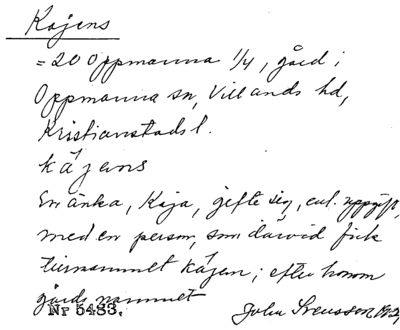 Kajens
= 20 Oppmanna 1/4, gård i
Oppmanna sn, Villands hd,
Kristianstads l.
kåjens
En änka, Kaja, gifte sig, enl. uppgift,
med en person, som därvid fick
tillnamnet kåjen; efter honom
gårds namnet
Nr 5483. John Svensson 1932